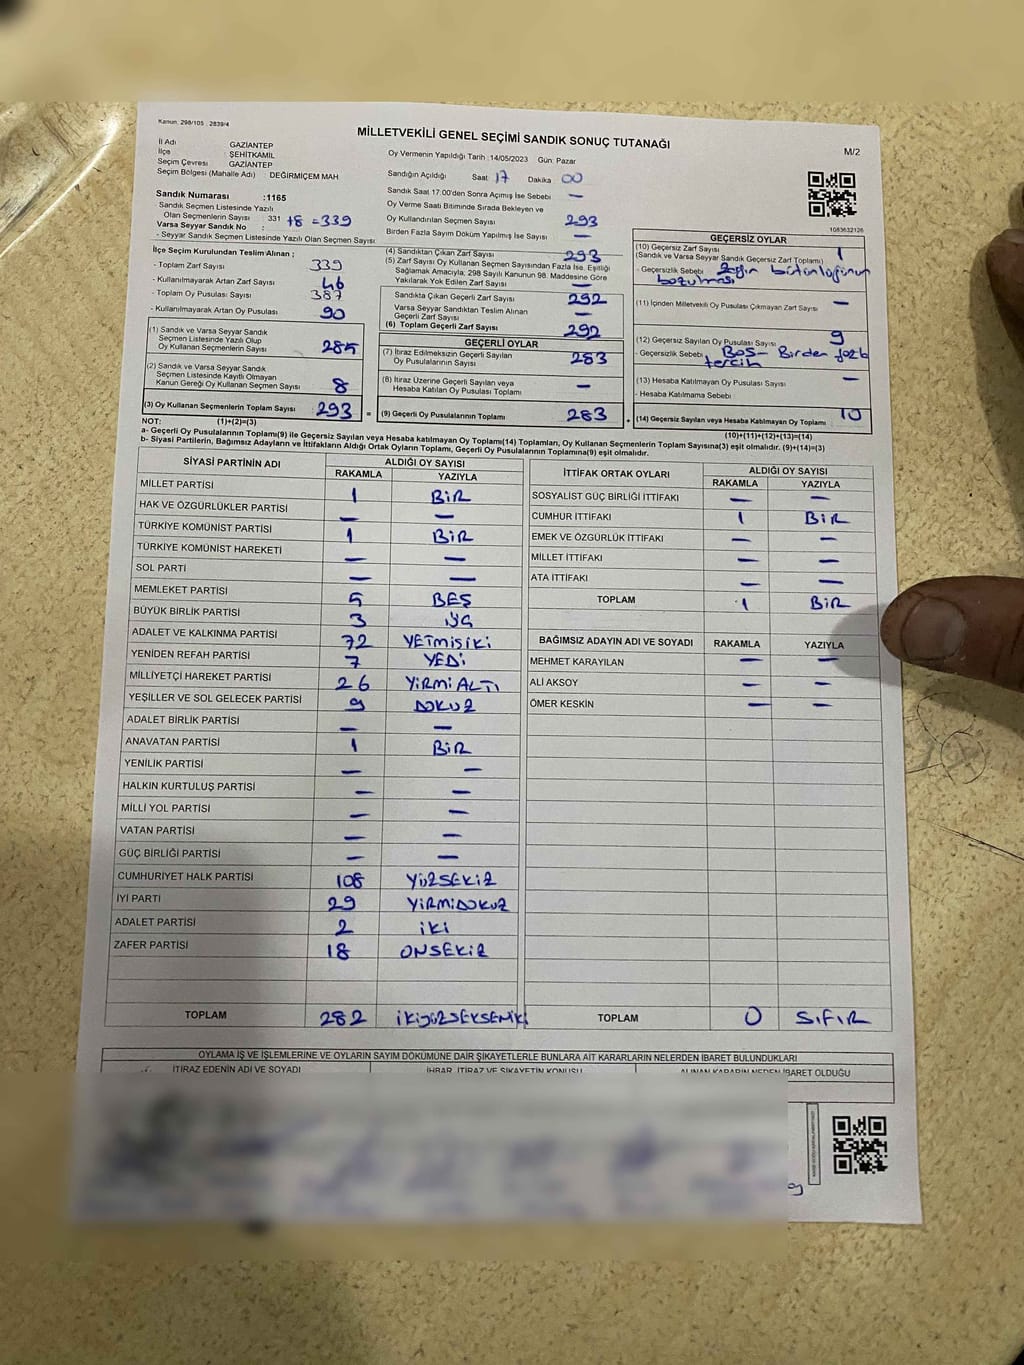 Kanun: 298/105 ; 2839/4
MİLLETVEKİLİ GENEL SEÇİMİ SANDIK SONUÇ TUTANAĞI
M/2
İl Adı GAZİANTEP
İlçe ŞEHİTKAMİL
Seçim Çevresi GAZİANTEP
Seçim Bölgesi (Mahalle Adı) DEĞİRMİÇEM MAH
Sandık Numarası :1165
- Sandık Seçmen Listesinde Yazılı
Olan Seçmenlerin Sayısı : 331 +8 = 339
Varsa Seyyar Sandık No :
- Seyyar Sandık Seçmen Listesinde Yazılı Olan Seçmen Sayısı
Oy Vermenin Yapıldığı Tarih : 14/05/2023 Gün: Pazar
Sandığın Açıldığı Saat 17 Dakika 00
Sandık Saat 17:00'den Sonra Açımış İse Sebebi —
Oy Verme Saati Bitiminde Sırada Bekleyen ve
Oy Kullandırılan Seçmen Sayısı 293
Birden Fazla Sayım Döküm Yapılmış İse Sayısı —
1083632126
İlçe Seçim Kurulundan Teslim Alınan ;
- Toplam Zarf Sayısı 339
- Kullanılmayarak Artan Zarf Sayısı 46
- Toplam Oy Pusulası Sayısı 387
- Kullanılmayarak Artan Oy Pusulası 90
(1) Sandık ve Varsa Seyyar Sandık
Seçmen Listesinde Yazılı Olup
Oy Kullanan Seçmenlerin Sayısı 285
(2) Sandık ve Varsa Seyyar Sandık
Seçmen Listesinde Kayıtlı Olmayan
Kanun Gereği Oy Kullanan Seçmen Sayısı 8
(3) Oy Kullanan Seçmenlerin Toplam Sayısı 293 =
(4) Sandıktan Çıkan Zarf Sayısı 293
(5) Zarf Sayısı Oy Kullanan Seçmen Sayısından Fazla İse, Eşitliği
Sağlamak Amacıyla, 298 Sayılı Kanunun 98. Maddesine Göre
Yakılarak Yok Edilen Zarf Sayısı —
Sandıkta Çıkan Geçerli Zarf Sayısı 292
Varsa Seyyar Sandıktan Teslim Alınan
Geçerli Zarf Sayısı —
(6) Toplam Geçerli Zarf Sayısı 292
GEÇERLİ OYLAR
(7) İtiraz Edilmeksizin Geçerli Sayılan
Oy Pusulalarının Sayısı 283
(8) İtiraz Üzerine Geçerli Sayılan veya
Hesaba Katılan Oy Pusulası Toplamı —
(9) Geçerli Oy Pusulalarının Toplamı 283
GEÇERSİZ OYLAR
(10) Geçersiz Zarf Sayısı 1
(Sandık ve Varsa Seyyar Sandık Geçersiz Zarf Toplamı)
- Geçersizlik Sebebi bütünlüğünün
bozulması
(11) İçinden Milletvekili Oy Pusulası Çıkmayan Zarf Sayısı —
(12) Geçersiz Sayılan Oy Pusulası Sayısı 9
- Geçersizlik Sebebi Boş- Birden
tercih
(13) Hesaba Katılmayan Oy Pusulası Sayısı —
- Hesaba Katılmama Sebebi
(14) Geçersiz Sayılan veya Hesaba Katılmayan Oy Toplamı 10
NOT: (1)+(2)=(3)
(10)+(11)+(12)+(13)=(14)
a- Geçerli Oy Pusulalarının Toplamı(9) ile Geçersiz Sayılan veya Hesaba katılmayan Oy Toplamı(14) Toplamları, Oy Kullanan Seçmenlerin Toplam Sayısına(3) eşit olmalıdır. (9)+(14)=(3)
b- Siyasi Partilerin, Bağımsız Adayların ve İttifakların Aldığı Ortak Oyların Toplamı, Geçerli Oy Pusulalarının Toplamına(9) eşit olmalıdır.
SİYASİ PARTİNİN ADI ALDIĞI OY SAYISI
RAKAMLA YAZIYLA
MİLLET PARTİSİ 1 BİR
HAK VE ÖZGÜRLÜKLER PARTİSİ — —
TÜRKİYE KOMÜNİST PARTİSİ 1 BİR
TÜRKİYE KOMÜNİST HAREKETİ — —
SOL PARTİ — —
MEMLEKET PARTİSİ 5 BEŞ
BÜYÜK BİRLİK PARTİSİ 3 ÜÇ
ADALET VE KALKINMA PARTİSİ 72 YETMİŞİKİ
YENİDEN REFAH PARTİSİ 7 YEDİ
MİLLİYETÇİ HAREKET PARTİSİ 26 YİRMİALTI
YEŞİLLER VE SOL GELECEK PARTİSİ 9 DOKUZ
ADALET BİRLİK PARTİSİ — —
ANAVATAN PARTİSİ 1 BİR
YENİLİK PARTİSİ — —
HALKIN KURTULUŞ PARTİSİ — —
MİLLİ YOL PARTİSİ — —
VATAN PARTİSİ — —
GÜÇ BİRLİĞİ PARTİSİ — —
CUMHURİYET HALK PARTİSİ 108 YÜZSEKİZ
İYİ PARTİ 29 YİRMİDOKUZ
ADALET PARTİSİ 2 İKİ
ZAFER PARTİSİ 18 ONSEKİZ
TOPLAM 282 İKİYÜZSEKSENİKİ
İTTİFAK ORTAK OYLARI ALDIĞI OY SAYISI
RAKAMLA YAZIYLA
SOSYALİST GÜÇ BİRLİĞİ İTTİFAKI — —
CUMHUR İTTİFAKI 1 BİR
EMEK VE ÖZGÜRLÜK İTTİFAKI — —
MİLLET İTTİFAKI — —
ATA İTTİFAKI — —
TOPLAM 1 BİR
BAĞIMSIZ ADAYIN ADI VE SOYADI RAKAMLA YAZIYLA
MEHMET KARAYILAN — —
ALİ AKSOY — —
ÖMER KESKİN — —
TOPLAM 0 SIFIR
OYLAMA İŞ VE İŞLEMLERİNE VE OYLARIN SAYIM DÖKÜMÜNE DAİR ŞİKAYETLERLE BUNLARA AİT KARARLARIN NELERDEN İBARET BULUNDUKLARI
İTİRAZ EDENİN ADI VE SOYADI İHBAR, İTİRAZ VE ŞİKAYETİN KONUSU ALINAN KARARIN NEDEN İBARET OLDUĞU